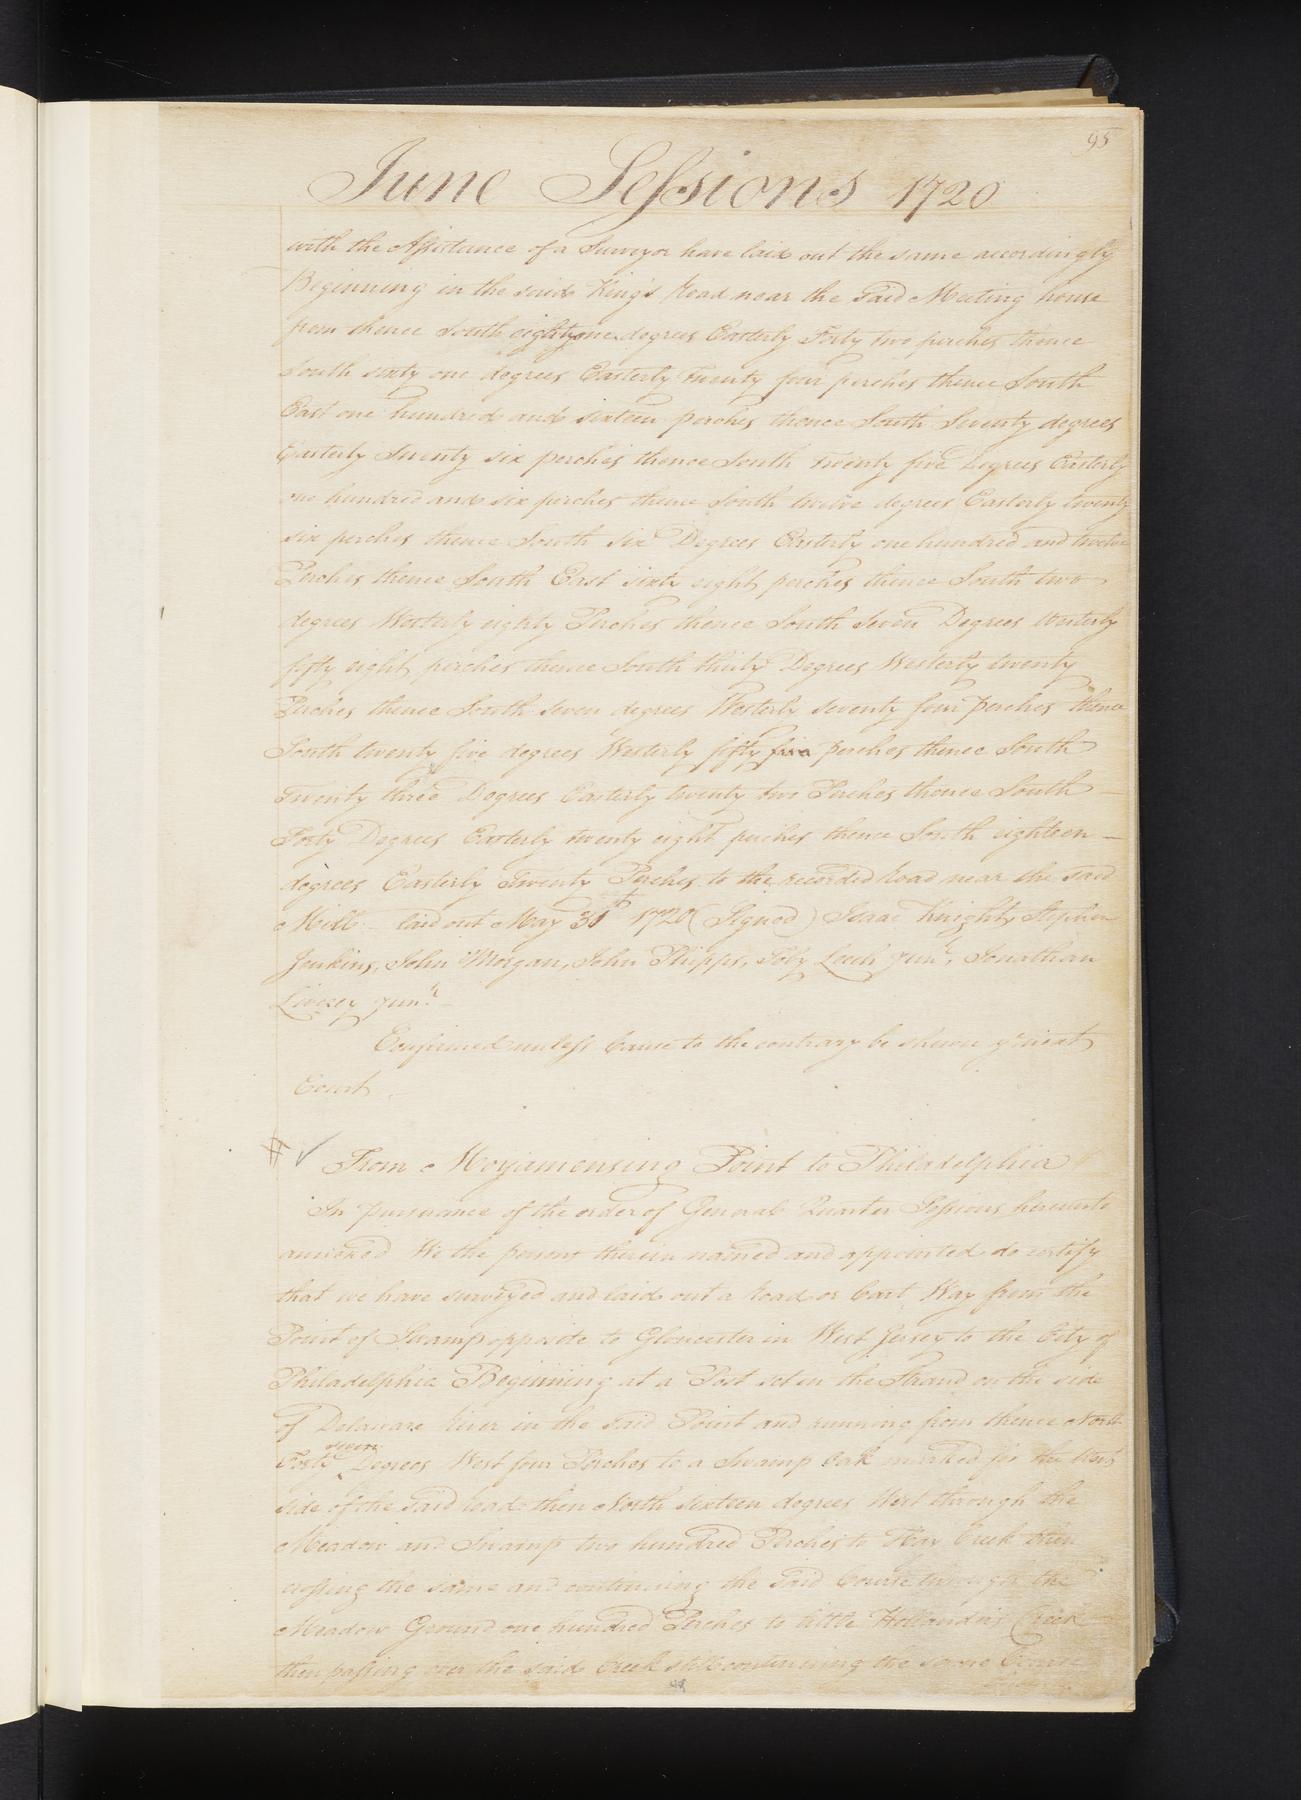 95
June Sessions 1720
with the Assistance of a Surveyor have laid out the same accordingly
Beginning in the said King's Road near the said Meeting house
from thence South eighty one degrees Easterly Forty two perches thence
South sixty one degrees Easterly Twenty four perches thence South
East one hundred and sixteen perches thence South Seventy degrees
Easterly Twenty six perches thence South Twenty five Degrees Easterly
one hundred and six perches thence South twelve degrees Easterly twenty
six perches thence South six Degrees Easterly one hundred and twelve
Perches thence South East sixty eight perches thence South two
degrees Westerly eighty Perches thence South Seven Degrees Westerly
fifty eight perches thence South thirty Degrees Westerly twenty
Perches thence South Seven degrees Westerly seventy four Perches thence
South twenty five degrees Westerly fifty five perches thence South
Twenty three Degrees Easterly twenty two Perches thence South
Forty Degrees Easterly twenty eight perches thence South eighteen
degrees Easterly Twenty Perches to the recorded Road near the said
Mill laid out May 31st 1720 (Signed) Isaac Knight, Stephen
Jenkins, John Morgan, John Phipps, Toby Leech Junr, Jonathan
Livezey Junr
Confirmed unless Cause to the contrary be shewn ye next
Court
# ✓ From Moyamensing Point to Philadelphia
In pursuance of the order of General Quarter Sessions hereunto
annexed We the persons therein named and appointed do certify
that we have surveyed and laid out a Road or Cart Way from the
Point of Swamp opposite to Gloucester in West Jersey to the City of
Philadelphia Beginning at a Post set in the Strand on the side
of Delaware River in the said Point and running from thence North
Forty seven Degrees West four Perches to a Swamp Oak marked for the West
side of the said Road then North sixteen degrees West through the
Meadow and Swamp two hundred Perches to Hay Creek then
crossing the same and continuing the said Course through the
Meadow Ground one hundred Perches to little Hollandris Creek
then passing over the said Creek still continuing the same Course